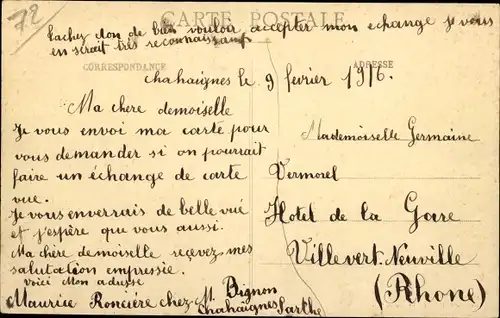 72
CARTE POSTALE
tachez don de bien vouloir accepter mon echange je vous
en serait très reconnaissant
CORRESPONDANCE
ADRESSE
Chahaignes le 9 fevrier 1916.
Ma chere demoiselle
Je vous envoi ma carte pour
vous demander si on pourrait
faire un échange de carte
vue.
Je vous enverrais de belle vue
et j'espère que vous aussi.
Ma chère demoiselle recevez mes
salutation empressie.
voici Mon adresse
Maurice Roncière chez M. Bignon
Chahaignes Sarthe
Mademoiselle Germaine
Vermorel
Hotel de la Gare
Villevert-Neuville
(Rhone)